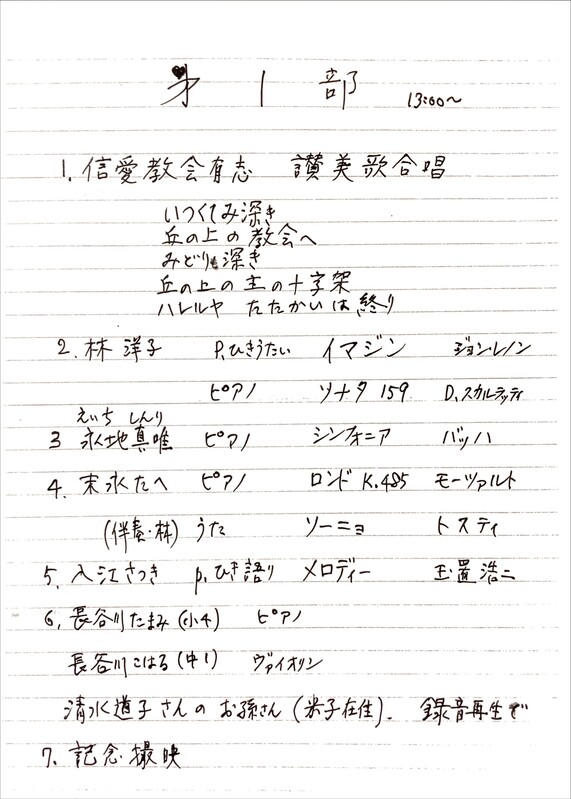 第1部 13:00〜
1. 信愛教会有志 讃美歌合唱
いつくしみ深き
丘の上の教会へ
みどりも深き
丘の上の主の十字架
ハレルヤ たたかいは終り
2. 林 洋子 P.ひきうたい イマジン ジョン・レノン
ピアノ ソナタ 159 D.スカルラッティ
えいち しんり
3 永地真唯 ピアノ シンフォニア バッハ
4. 末永たへ ピアノ ロンド K.485 モーツァルト
(伴奏・林) うた ソーニョ トスティ
5. 入江さつき p.ひき語り メロディー 玉置浩二
6. 長谷川たまみ(小4) ピアノ
長谷川こはる(中1) ヴァイオリン
清水道子さんのお孫さん(米子在住). 録音再生で
7. 記念撮映